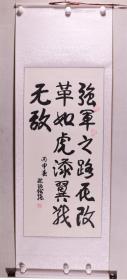 強軍之路在改
革如虎添翼战
无敌
丙申夏